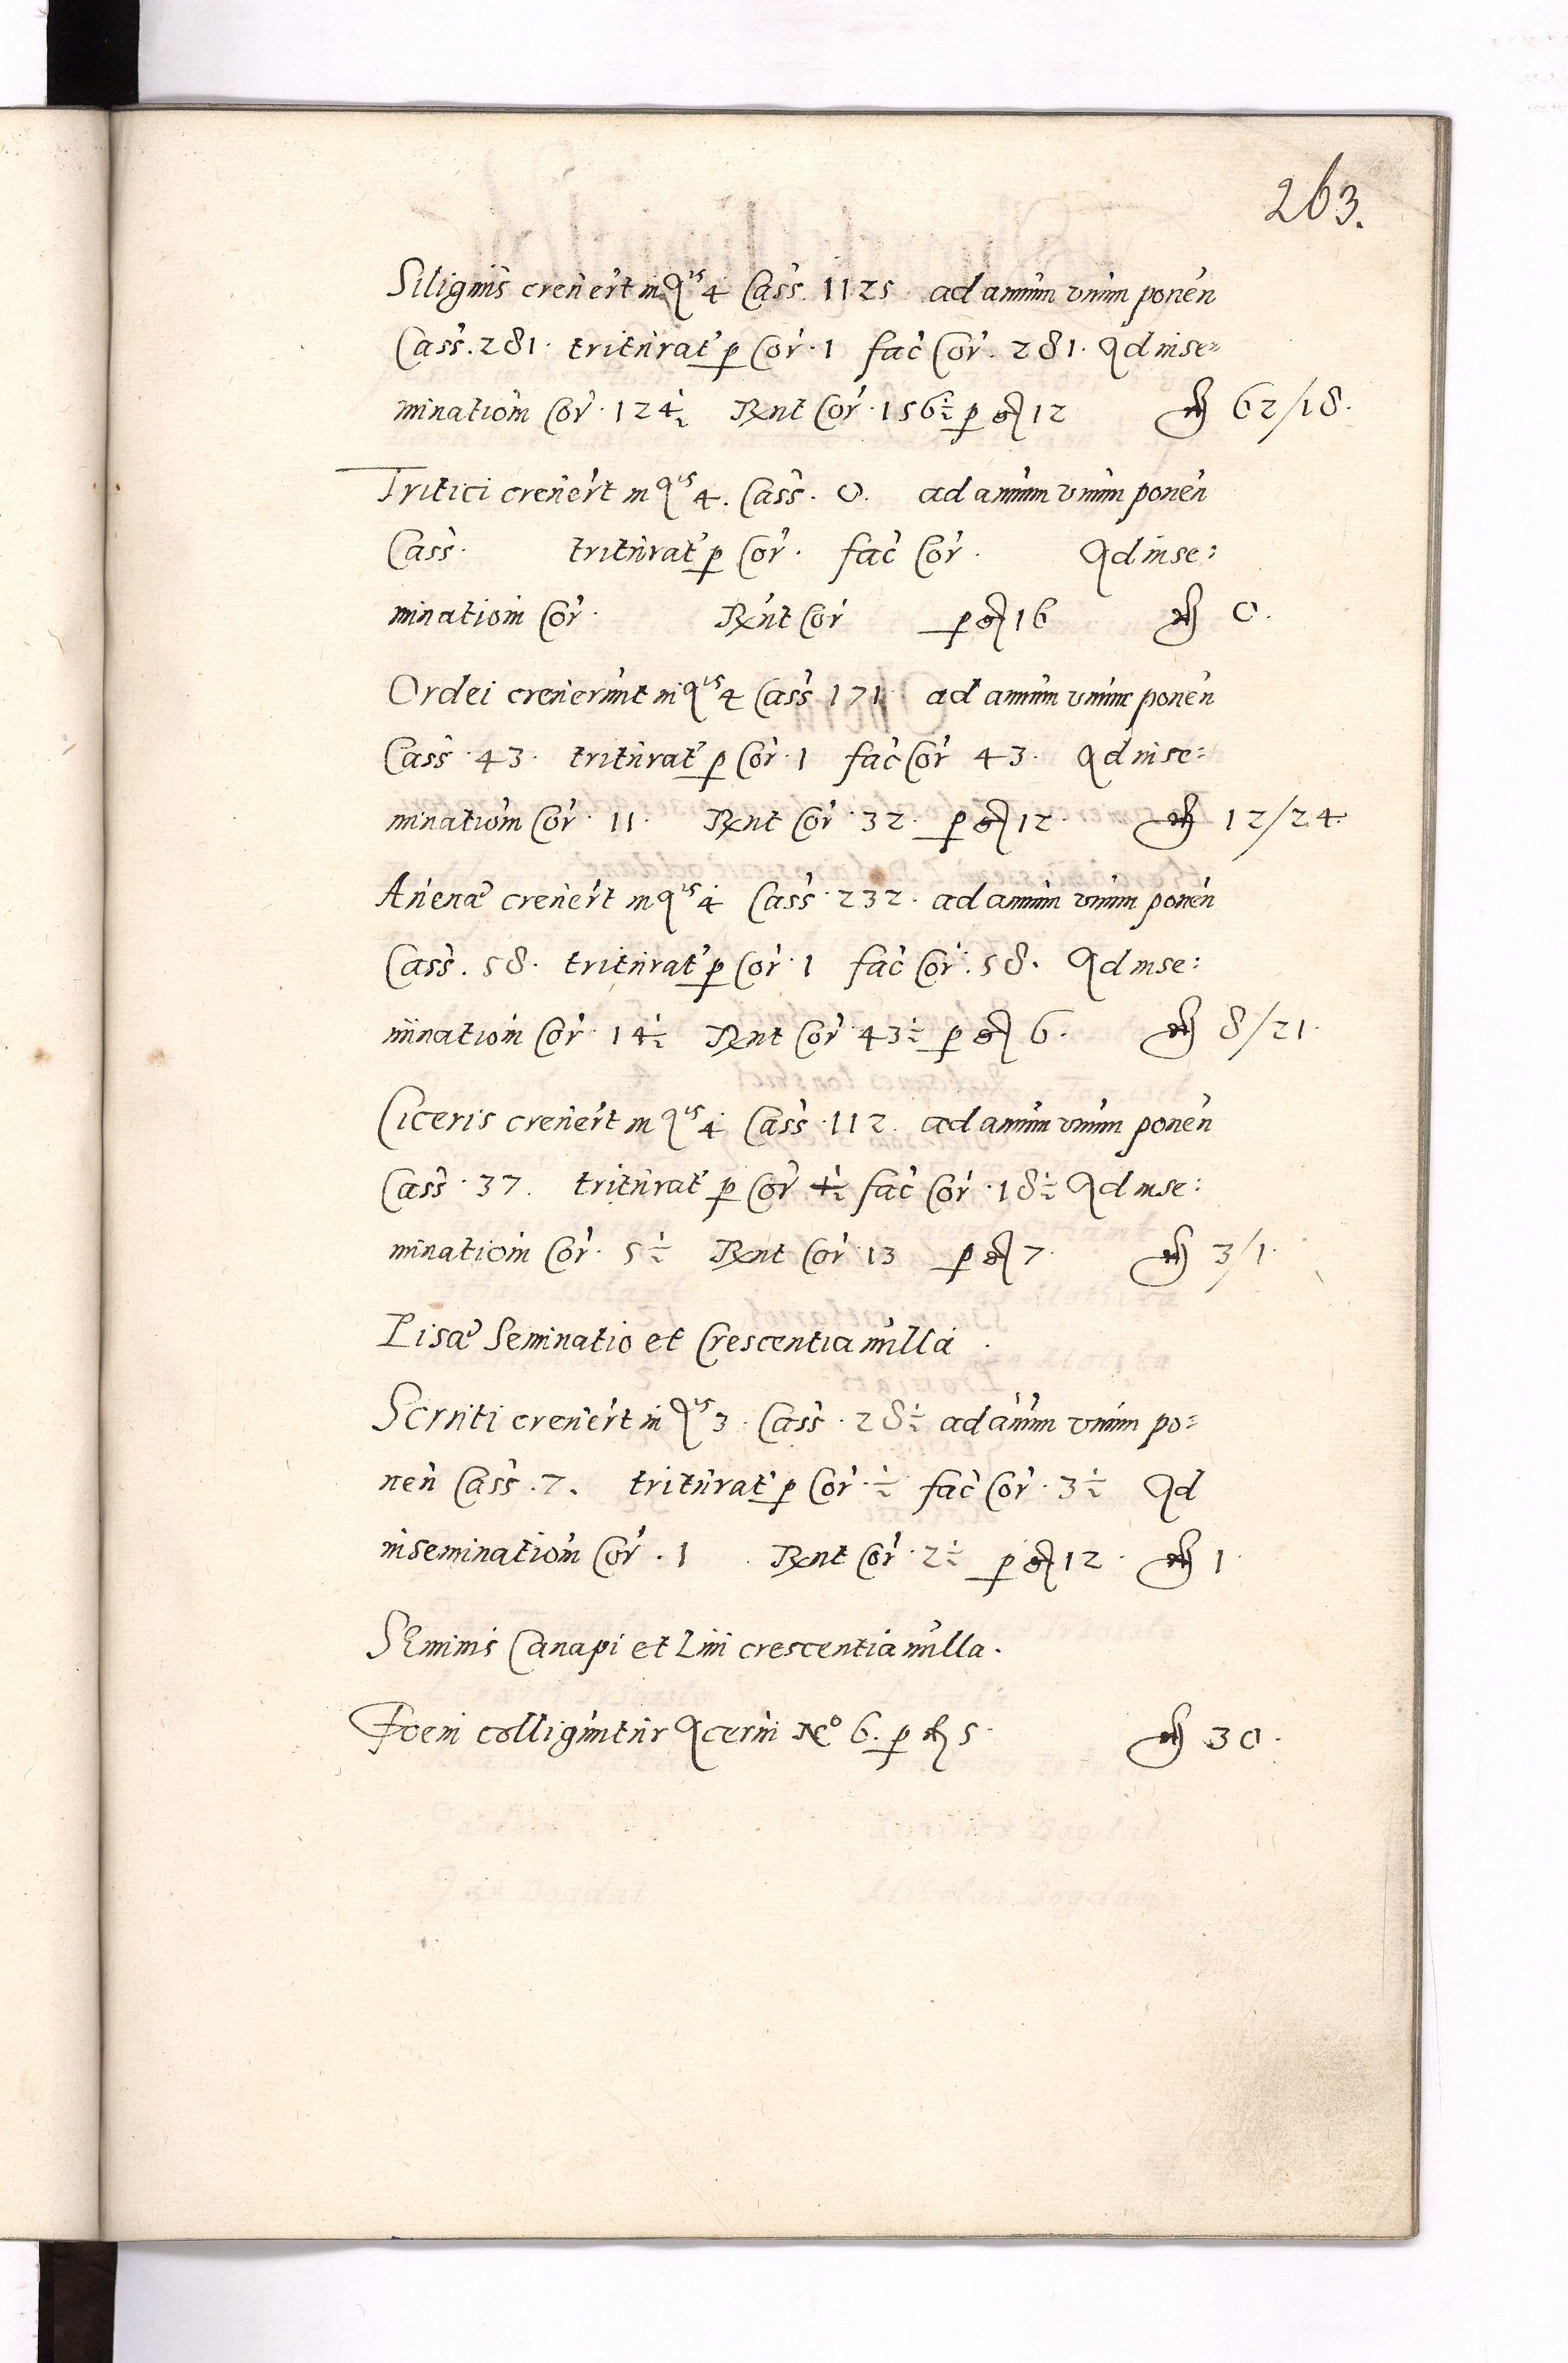 263.
Siliginis creuert in qis 4 Cass. 1125 ad annum vnum ponen
Cass. 281. triturat p Cor. 1 fac Cor. 281. Ad inse=
minatiom Cor. 124½ Rnt Cor. 156½ p gr 12 fl 62/18.
Tritici creuert in qis 4. Cass. 0. ad annum vnum ponen
Cass. triturat p Cor. fac Cor. Ad inse:
minatiom Cor. Rnt Cor p gr 16 fl 0.
Ordei creuerunt in qis 4 Cass 171 ad annum vnum ponen
Cass 43. triturat p Cor. 1 fac Cor 43. Ad inse:
minatiom Cor. 11. Rnt Cor. 32. p gr 12. fl 12/24.
Auenæ creuert in qis 4 Cass. 232. ad annum vnum ponen
Cass. 58. triturat p Cor. 1 fac Cor. 58. Ad inse:
minatiom Cor. 14½ Rnt Cor 43½ p gr 6. fl 8/21.
Ciceris creuert in qis 4 Cass. 112. ad annum vnum ponen
Cass. 37. triturat p Cor ½ fac Cor. 18½ Ad inse:
minatiom Cor. 5½ Rnt Cor 13 p gr 7. fl 3/1.
Pisæ Seminatio et Crescentia nulla.
Scruti creuert in qis 3. Cass. 28½ ad annum vnum po=
nen Cass. 7. triturat p Cor. ½ fac Cor. 3½ Ad
inseminatiom Cor. 1 Rnt Cor. 2½ p gr 12. fl 1.
Seminis Canapi et Lini crescentia nulla.
Foeni colliguntur Acerui No 6. p fl 5. fl 30.